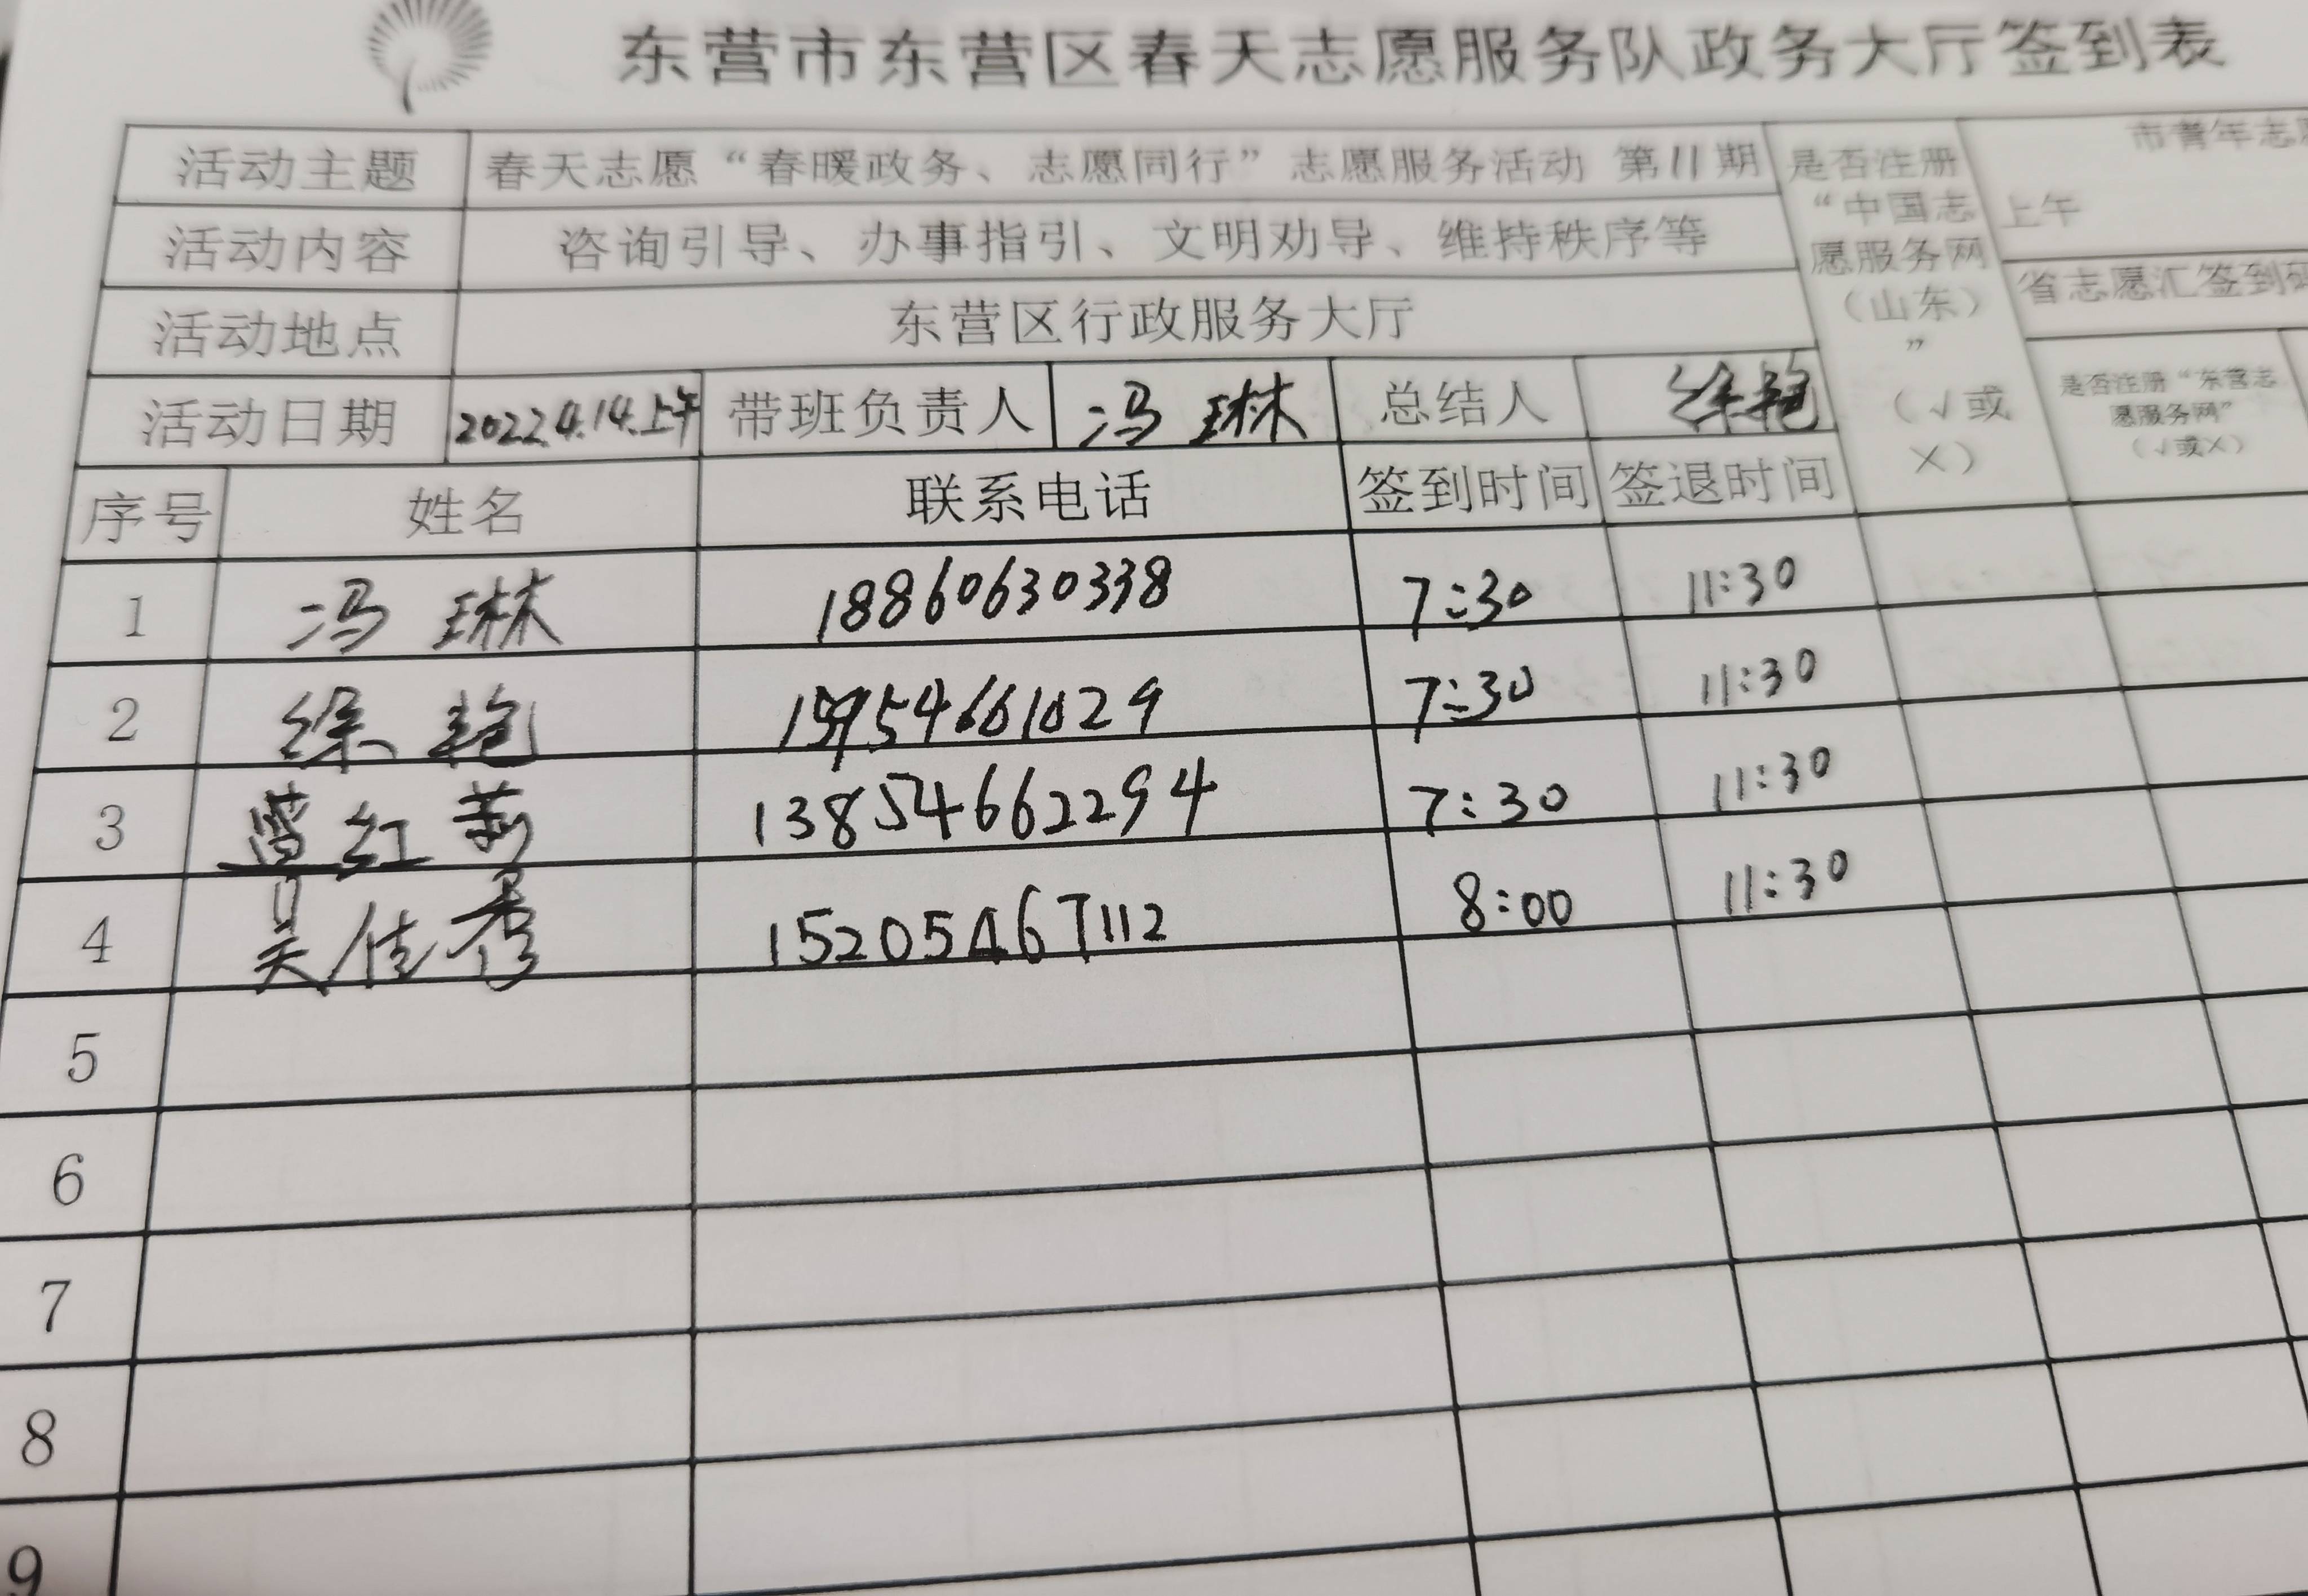 东营市东营区春天志愿服务队政务大厅签到表
活动主题 春天志愿“春暖政务、志愿同行”志愿服务活动 第11期 是否注册“中国志愿服务网（山东）”（√或×） 市青年志愿
上午
活动内容 咨询引导、办事指引、文明劝导、维持秩序等
省志愿汇签到码
活动地点 东营区行政服务大厅
活动日期 2022.4.14.上午 带班负责人 冯琳 总结人 徐艳 是否注册“东营志愿服务网”（√或×）
序号 姓名 联系电话 签到时间 签退时间
1 冯琳 18860630338 7:30 11:30
2 徐艳 7:30 11:30
3 红莉 13854662294 7:30 11:30
4 吴佳秀 15205467112 8:00 11:30
5
6
7
8
9